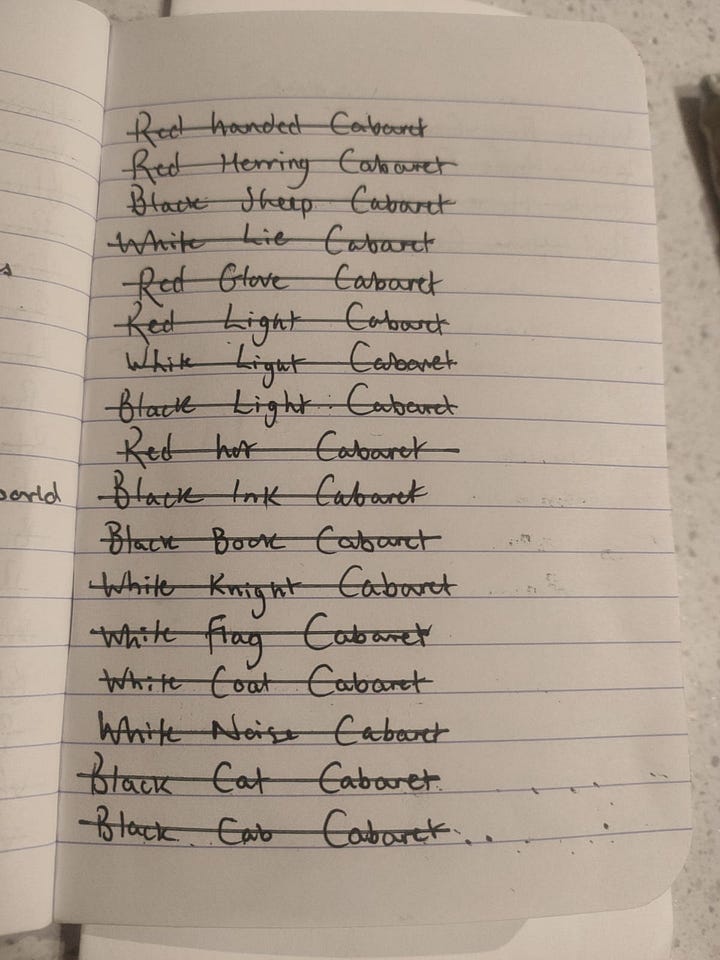 Red handed Cabaret
Red Herring Cabaret
Black Sheep Cabaret
White Lie Cabaret
Red Glove Cabaret
Red Light Cabaret
White Light Cabaret
Black Light Cabaret
Red hot Cabaret
Black Ink Cabaret
Black Book Cabaret
White Knight Cabaret
White flag Cabaret
White Coat Cabaret
White Noise Cabaret
Black Cat Cabaret
Black Cab Cabaret